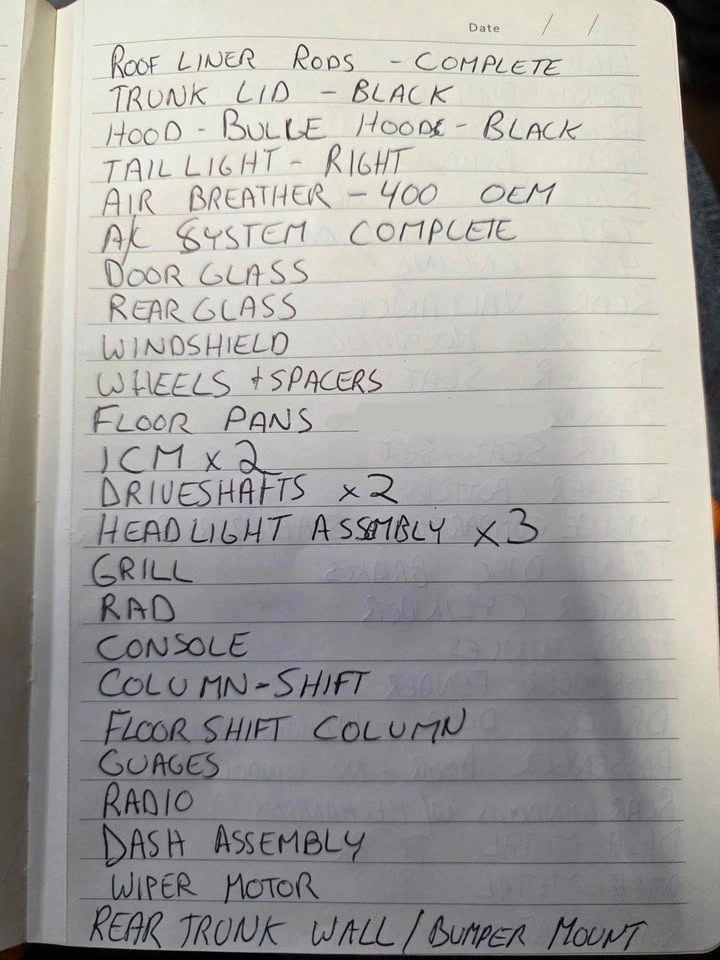 Date / /
ROOF LINER RODS - COMPLETE
TRUNK LID - BLACK
HOOD - BULGE HOOD - BLACK
TAIL LIGHT - RIGHT
AIR BREATHER - 400 OEM
A/C SYSTEM COMPLETE
DOOR GLASS
REAR GLASS
WINDSHIELD
WHEELS + SPACERS
FLOOR PANS
ICM x 2
DRIVESHAFTS x 2
HEADLIGHT ASSEMBLY x 3
GRILL
RAD
CONSOLE
COLUMN-SHIFT
FLOOR SHIFT COLUMN
GUAGES
RADIO
DASH ASSEMBLY
WIPER MOTOR
REAR TRUNK WALL / BUMPER MOUNT